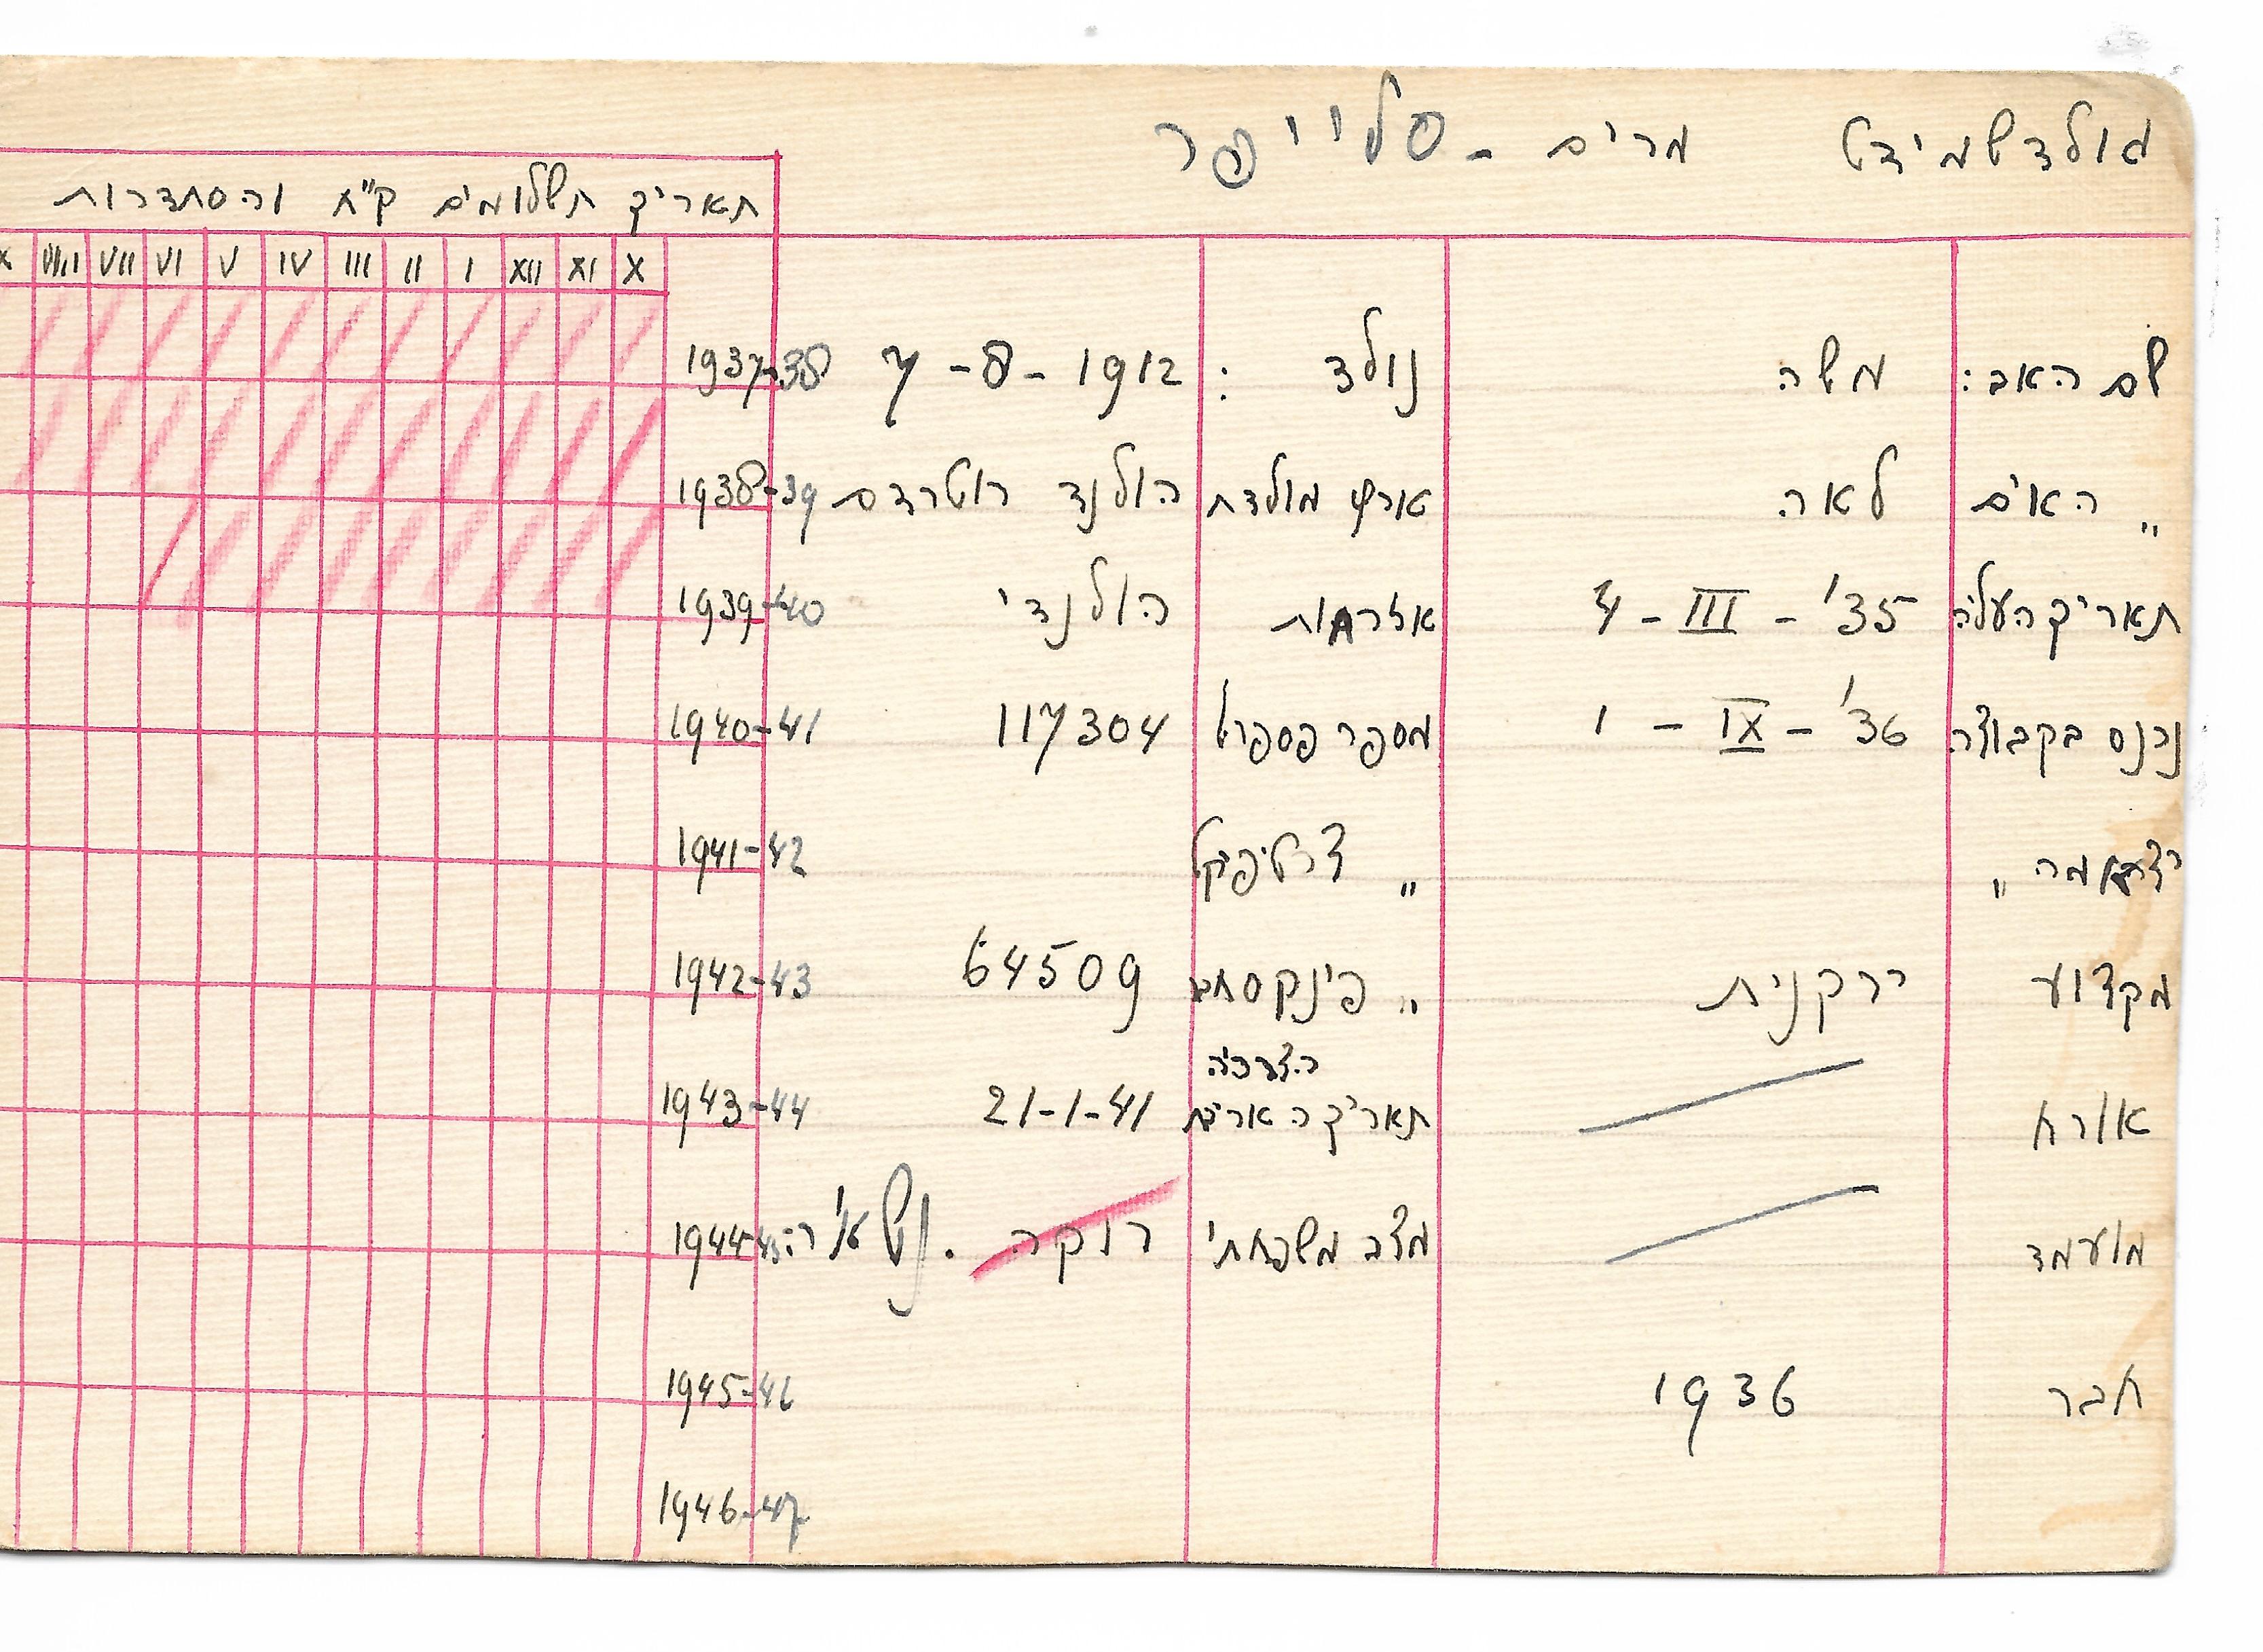 גולדשמידט מרים - סלייפר
שם האב: משה
" האם לאה
תאריך העליה 4 - III - '35
נכנס בקבוצה 1 - IX - '36
מקצוע ירקנית
אורח
מועמד
חבר 1936
נולד : 7 - 8 - 1912
ארץ מולדת הולנד רוטרדם
אזרחות הולנדי
מספר פספורט 117304
"
" פינקס חבר 64509
הצרכיה
תאריך 21-1-41
מצב משפחתי רוקה. נשואה
תאריך תשלומים ק"ח והסתדרות
X XI XII I II III IV V VI VII VIII X
1937-38
1938-39
1939-40
1940-41
1941-42
1942-43
1943-44
1944-45
1945-46
1946-47